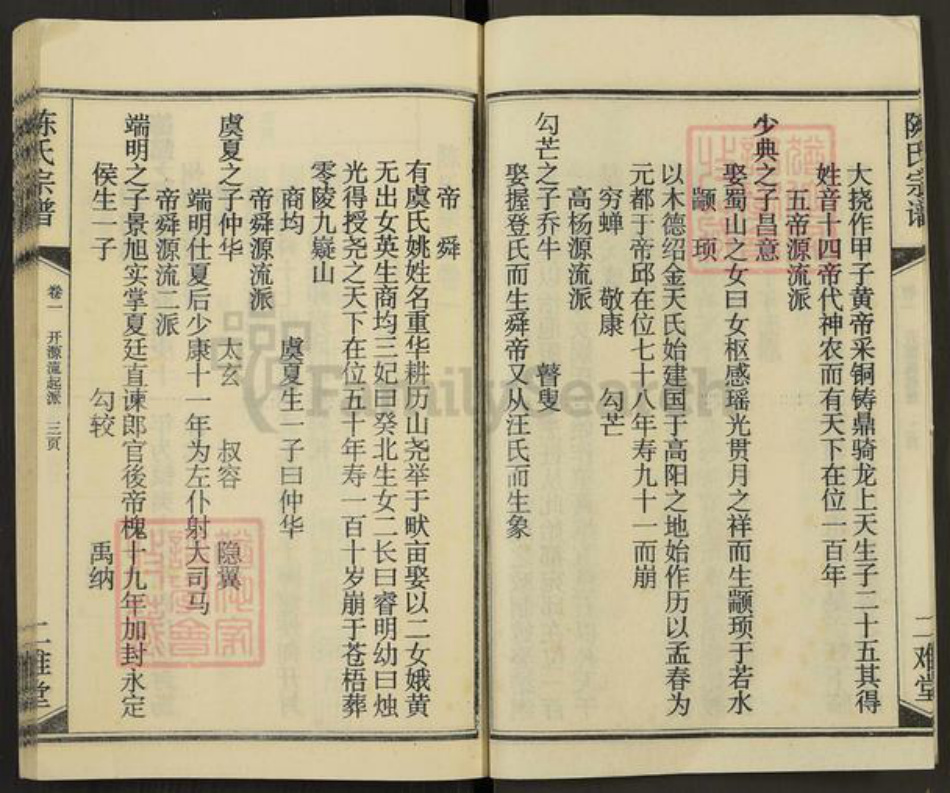 陈氏宗谱
二难堂
大挠作甲子黄帝采铜铸鼎骑龙上天生子二十五其得
姓音十四帝代神农而有天下在位一百年
五帝源流派
少典之子昌意
娶蜀山之女曰女枢感瑶光贯月之祥而生颛顼于若水
颛 顼
以木德绍金天氏始建国于高阳之地始作历以孟春为
元都于帝邱在位七十八年寿九十一而崩
穷蝉 敬康 勾芒
高杨源流派
勾芒之子乔牛 瞽叟
娶握登氏而生舜帝又从汪氏而生象
帝 舜
有虞氏姚姓名重华耕历山尧举于畎亩娶以二女娥黄
无出女英生商均三妃曰癸北生女二长曰睿明幼曰烛
光得授尧之天下在位五十年寿一百十岁崩于苍梧葬
零陵九嶷山
商均 虞夏生一子曰仲华
帝舜源流派
虞夏之子仲华 太玄 叔容 隐翼
端明仕夏后少康十一年为左仆射大司马
帝舜源流二派
端明之子景旭实掌夏廷直谏郎官後帝槐十九年加封永定
侯生一子 勾较 禹纳
陈氏宗谱
卷一 开源流起派 三页
二难堂
FamilySearch